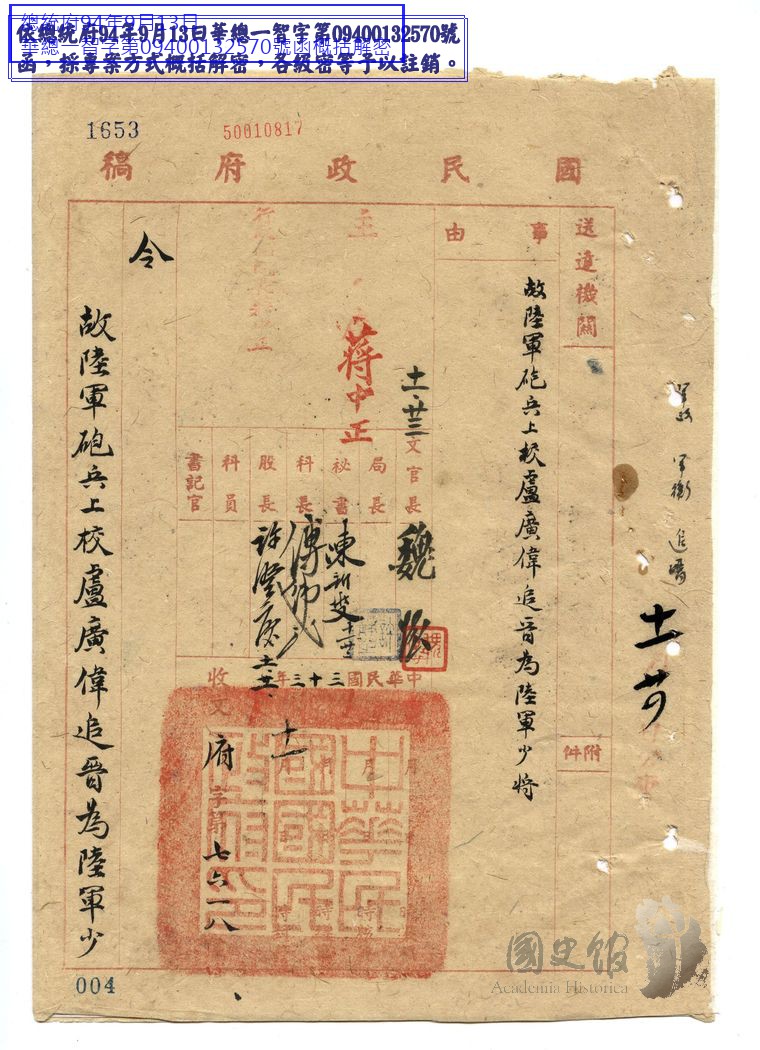 總統府94年9月13日
華總一智字第09400132570號函概括解密
依總統府94年9月13日華總一智字第09400132570號
函，採專案方式概括解密，各級密等予以註銷。
1653
50010817
國民政府稿
送達機關
附件
事由
故陸軍砲兵上校盧廣偉追晉為陸軍少將
主
蔣中正
十一、廿三
文官長
魏
局長
秘書
科長
股長
科員
書記官
中華民國三十三年
十一
收文
府字第七六一八
中華民國國民政府印
令
故陸軍砲兵上校盧廣偉追晉為陸軍少
追晉
004
國史館
Academia Historica